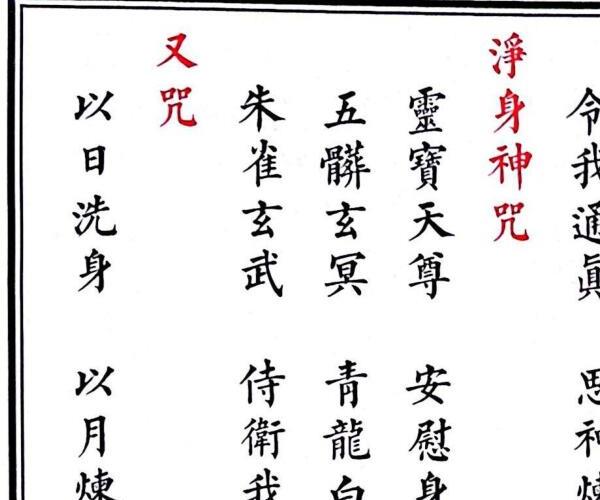 令我通眞 思神煉
淨身神咒
靈寶天尊 安慰身
五臟玄冥 青龍白
朱雀玄武 侍衛我
又咒
以日洗身 以月煉